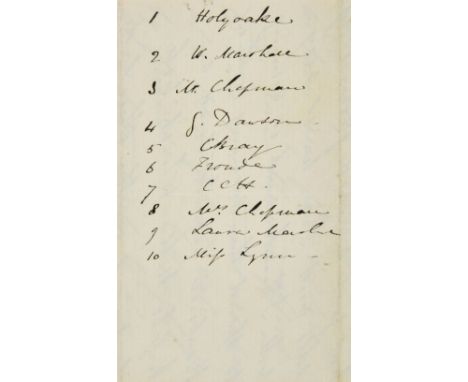 1 Holyoake
2 W. Marshall
3 M. Chapman
4 G. Dawson
5 CBray
6 Froude
7 CCH.
8 Mrs Chapman
9 Laura
10 Miss Lynn